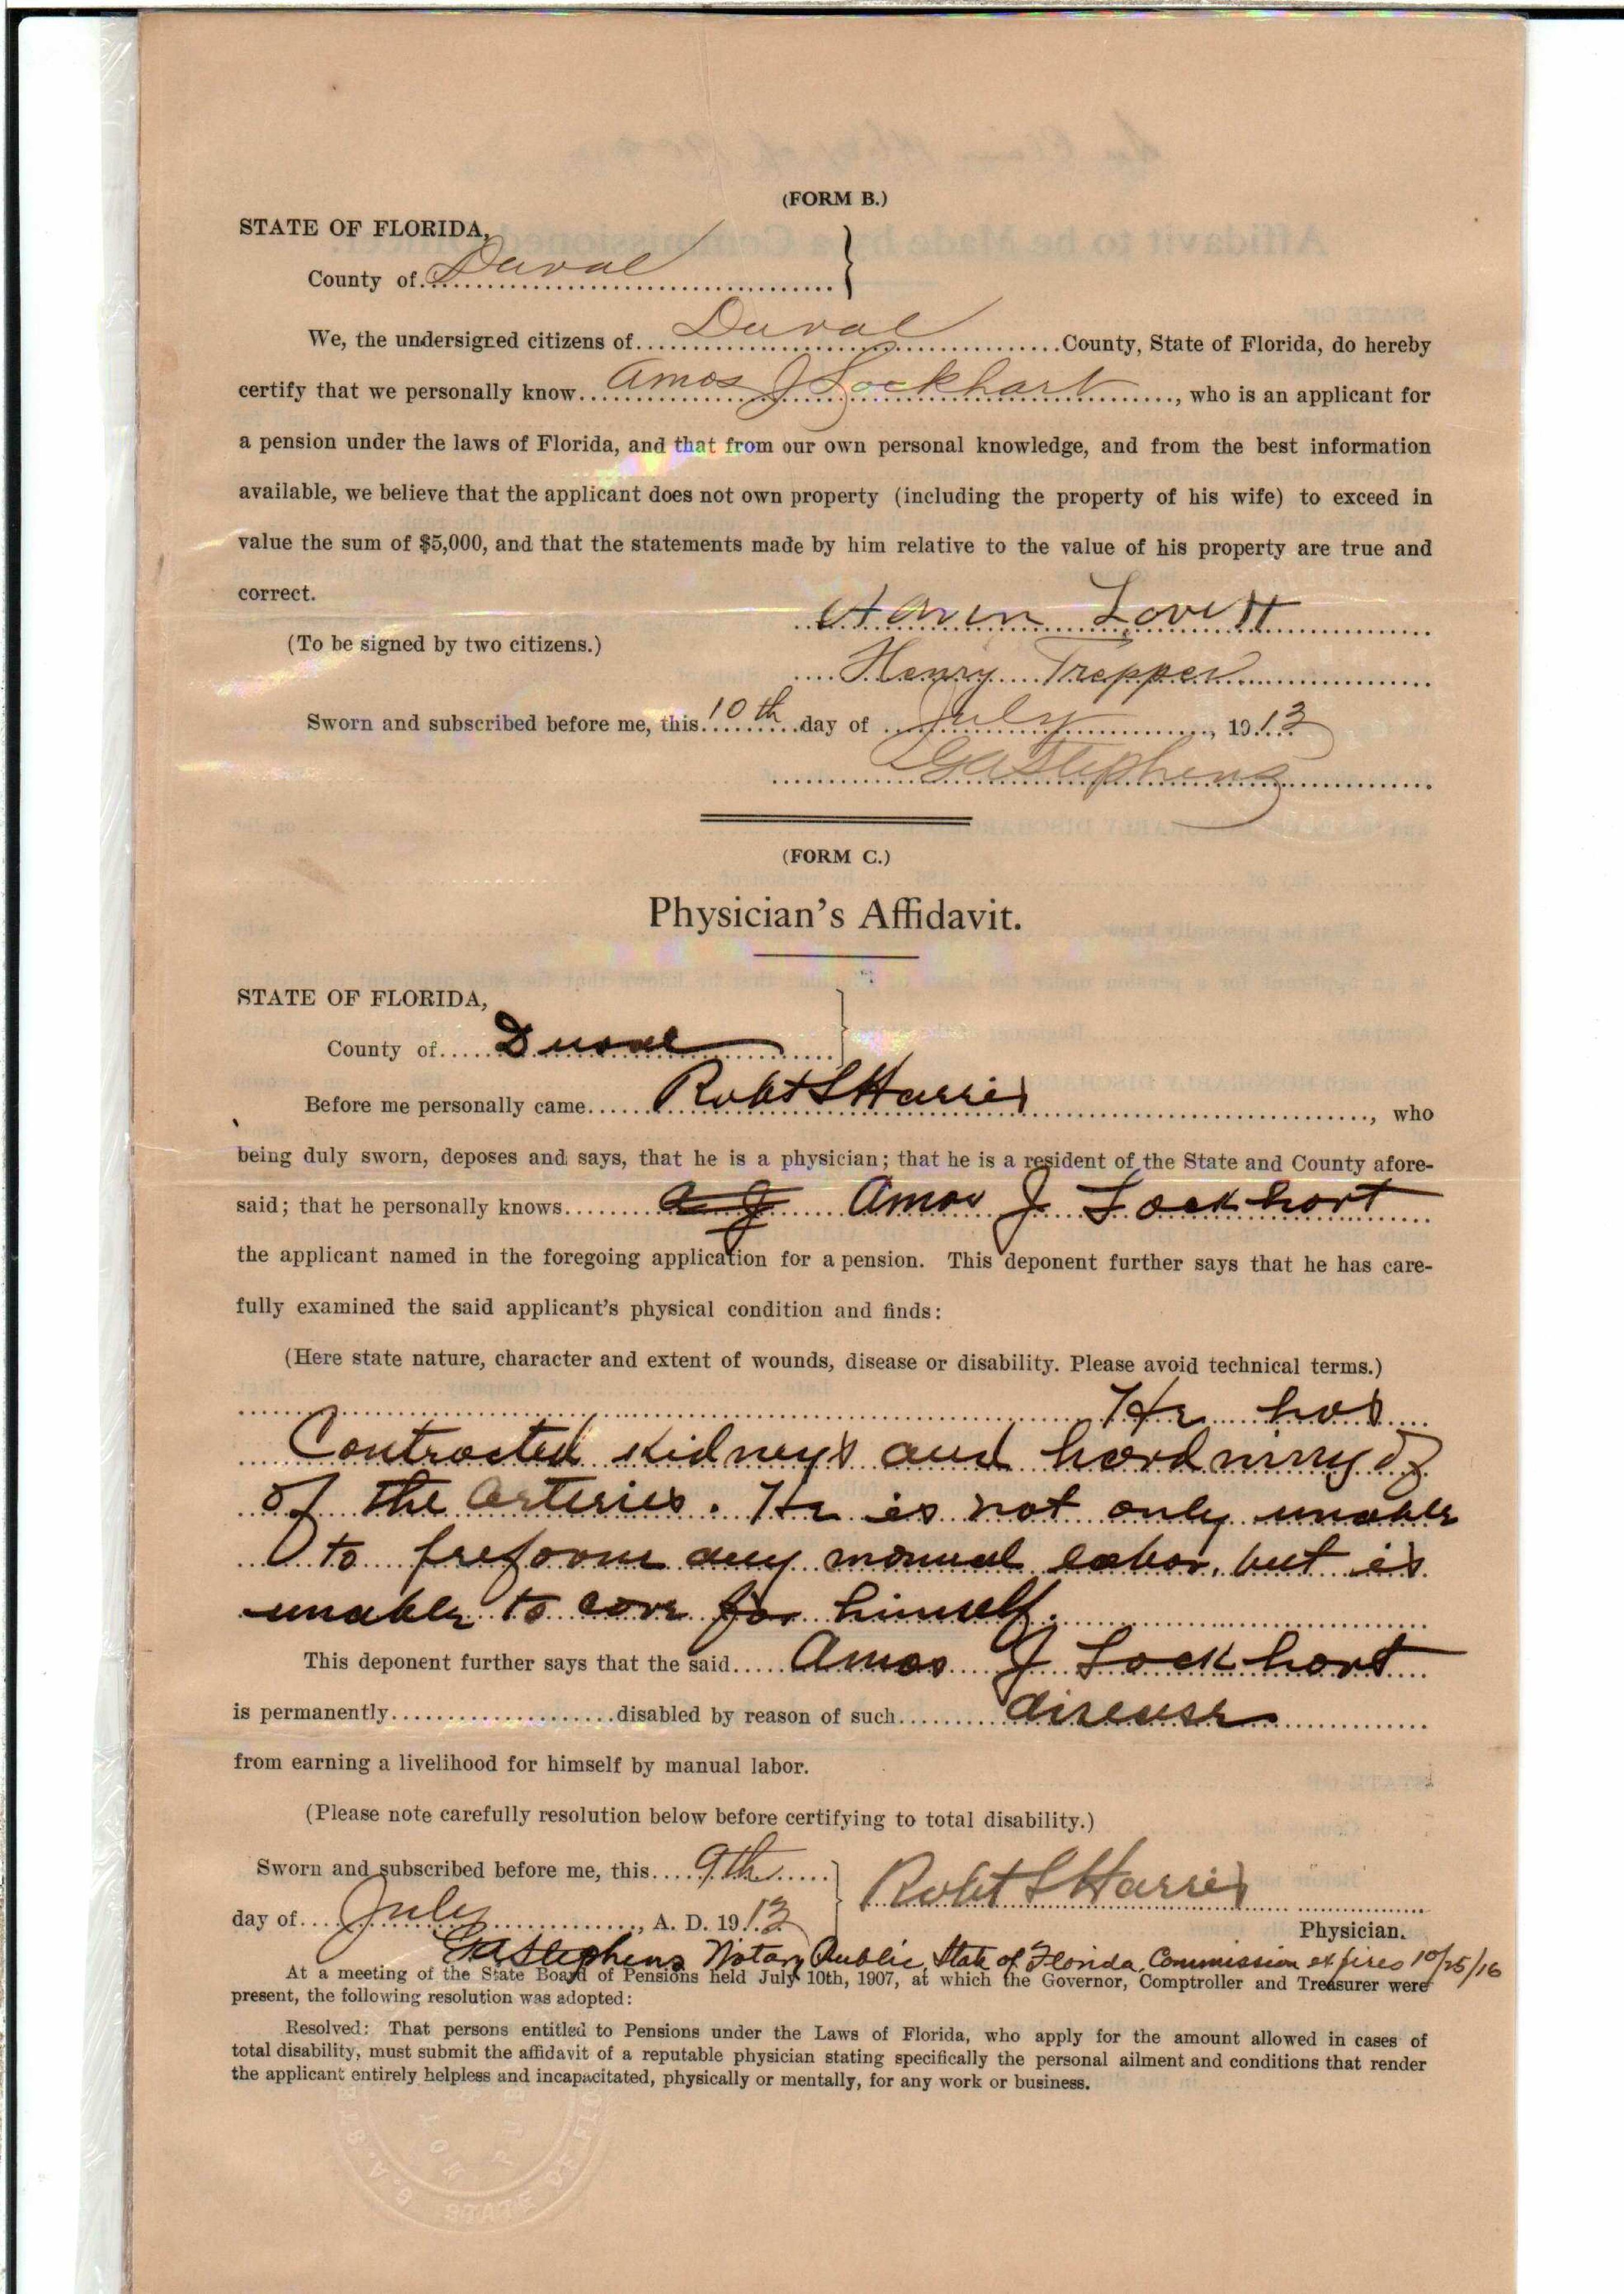 (FORM B.)
STATE OF FLORIDA,
County of Duval
We, the undersigned citizens of Duval County, State of Florida, do hereby
certify that we personally know Amos J Lockhart, who is an applicant for
a pension under the laws of Florida, and that from our own personal knowledge, and from the best information
available, we believe that the applicant does not own property (including the property of his wife) to exceed in
value the sum of $5,000, and that the statements made by him relative to the value of his property are true and
correct.
Lovitt
(To be signed by two citizens.)
Henry Trepper
Sworn and subscribed before me, this 10th day of July, 1913
GA Stephens
(FORM C.)
Physician's Affidavit.
STATE OF FLORIDA,
County of Duval
Before me personally came Robt S Harris, who
being duly sworn, deposes and says, that he is a physician; that he is a resident of the State and County afore-
said; that he personally knows a J Amos J Lockhart
the applicant named in the foregoing application for a pension. This deponent further says that he has care-
fully examined the said applicant's physical condition and finds:
(Here state nature, character and extent of wounds, disease or disability. Please avoid technical terms.)
He has
Contracted kidneys and hardning of
of the arteries. He is not only unable
to preform any manual labor, but is
unable to care for himself.
This deponent further says that the said Amos J Lockhart
is permanently disabled by reason of such disease
from earning a livelihood for himself by manual labor.
(Please note carefully resolution below before certifying to total disability.)
Sworn and subscribed before me, this 9th
day of July, A. D. 1913
Robt S Harris
Physician.
GA Stephens Notary Public State of Florida Commission expires 10/25/16
At a meeting of the State Board of Pensions held July 10th, 1907, at which the Governor, Comptroller and Treasurer were
present, the following resolution was adopted:
Resolved: That persons entitled to Pensions under the Laws of Florida, who apply for the amount allowed in cases of
total disability, must submit the affidavit of a reputable physician stating specifically the personal ailment and conditions that render
the applicant entirely helpless and incapacitated, physically or mentally, for any work or business.